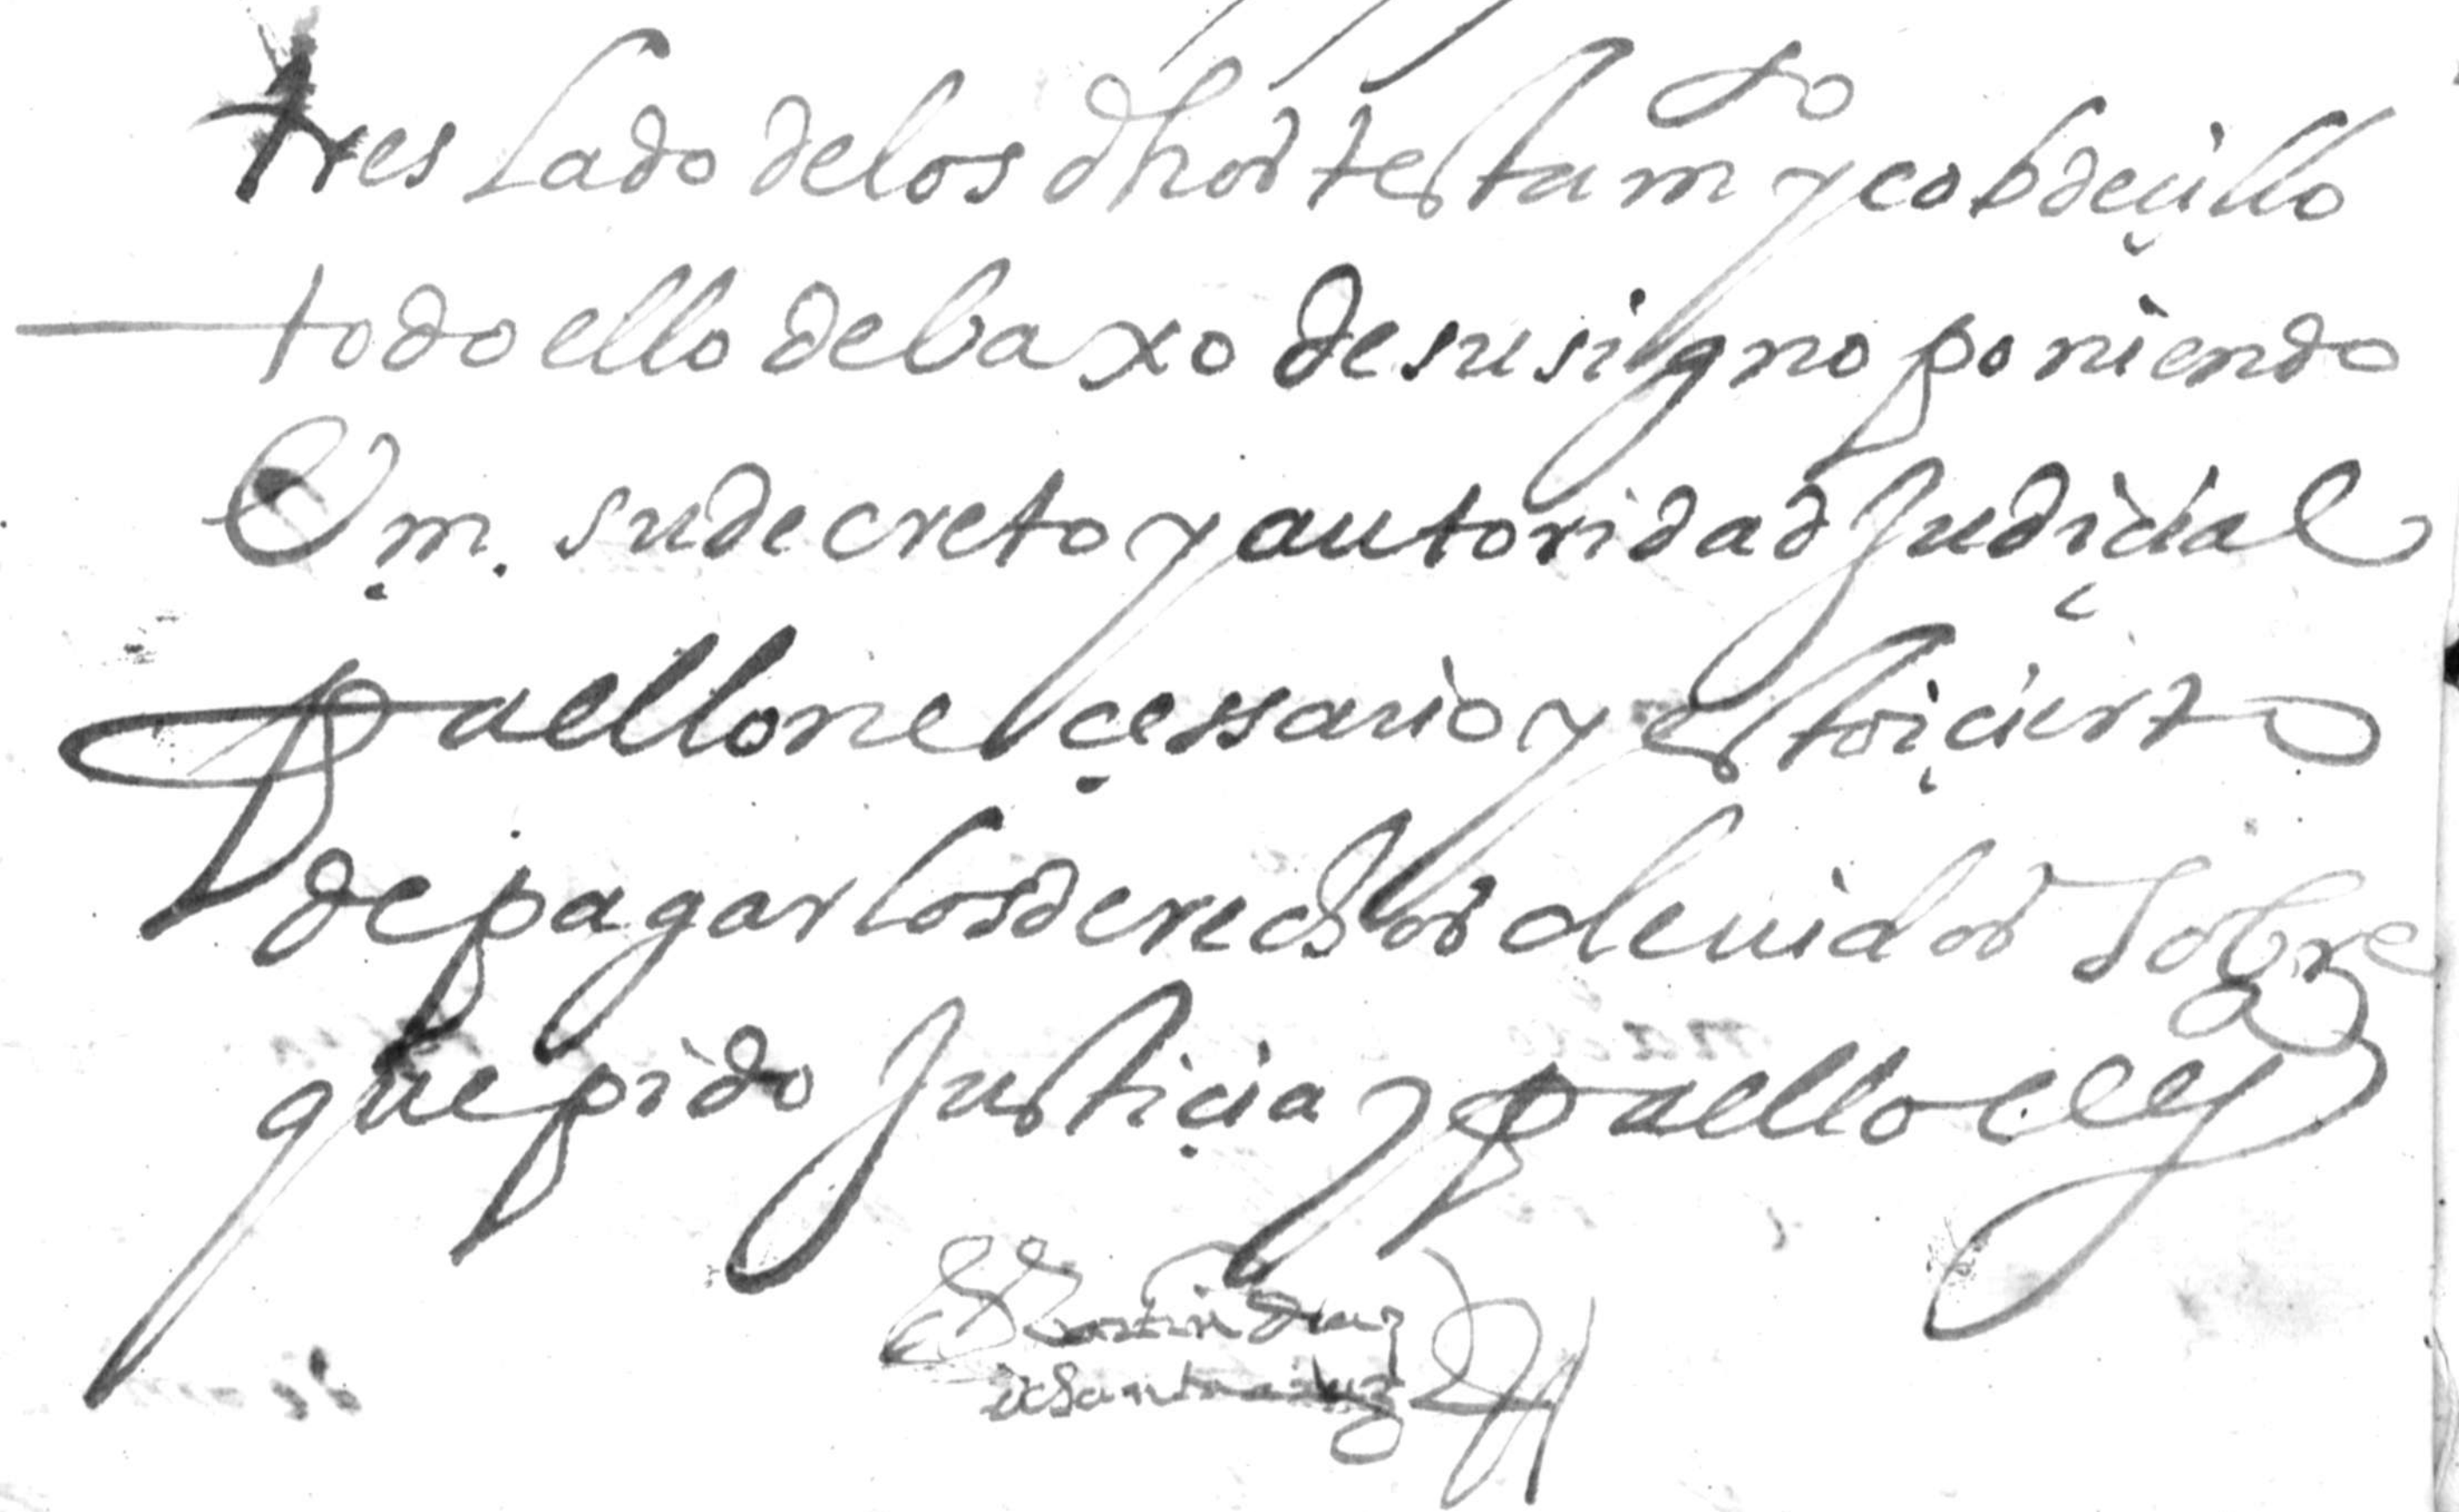 treslado de los dhos testam^to y cobdeçillo
todo ello debaxo de su signo poniendo
Vm. su decreto y autoridad Judiçial
pa ello neçessario y estoi çierto
de pagar los derechos deuidos sobre
que pido Justiçia y pa ello etc
Martin Diaz
de Santa cruz